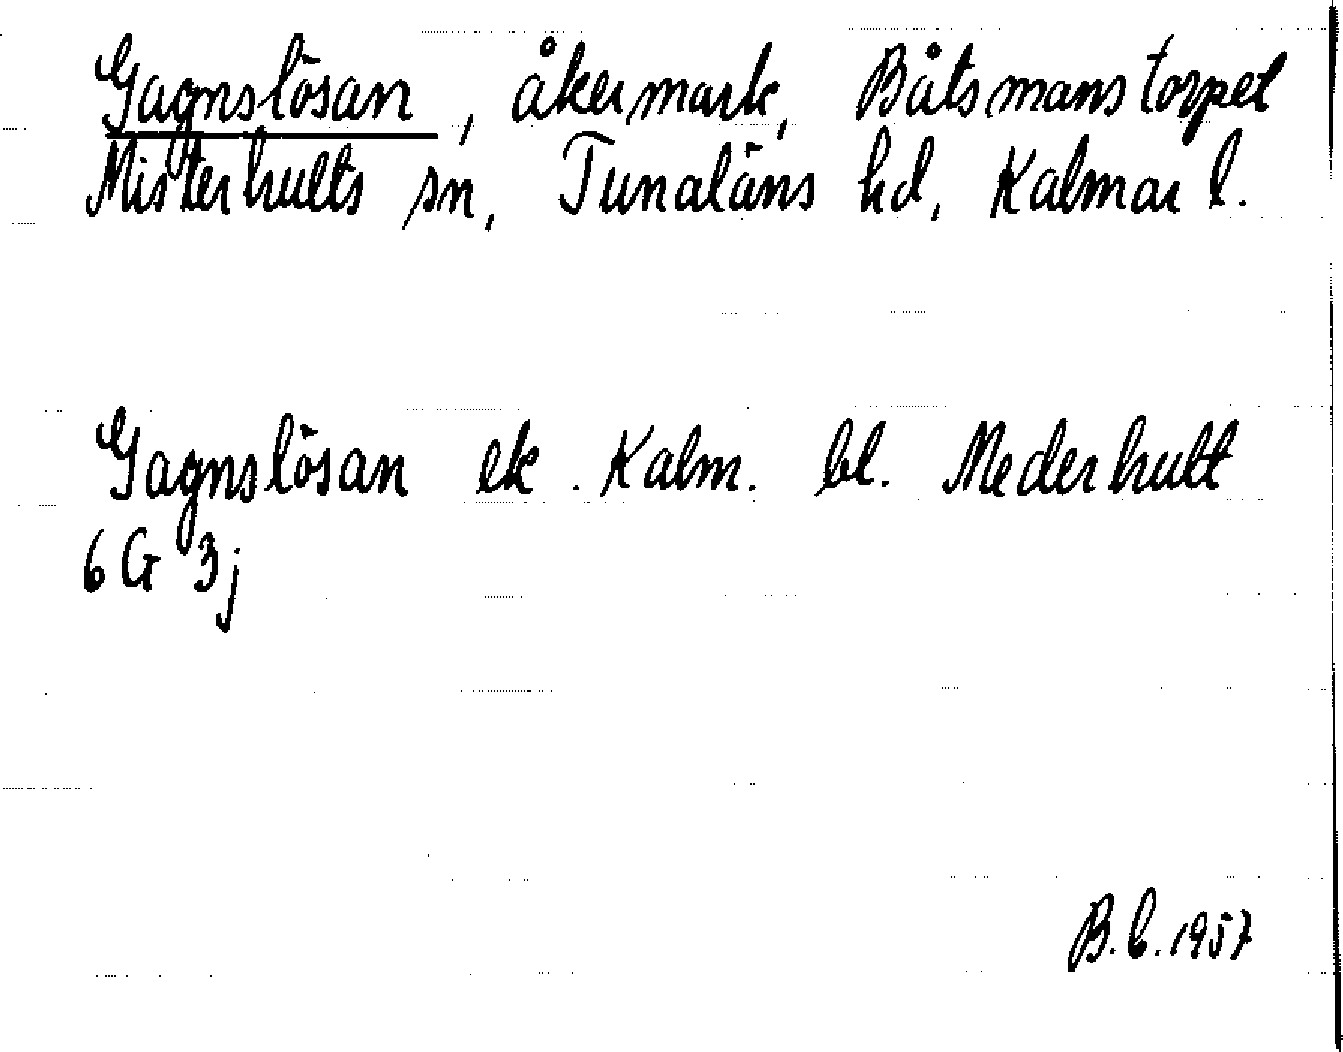 Gagnslösan, åkermark, Båtsmanstorpet
Misterhults sn, Tunaläns hd, Kalmar l.
Gagnslösan ek. Kalm. bl. Mederhult
6 G 3j
B.b. 1957